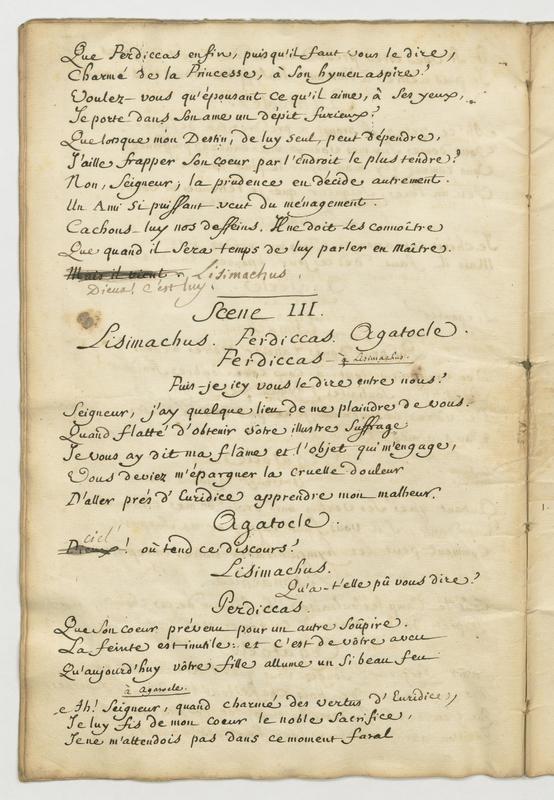 Que Perdiccas enfin, puisqu'il faut vous le dire,
Charmé de la Princesse, à son hymen aspire?
Voulez-vous qu'épousant ce qu'il aime, à ses yeux,
Je porte dans son ame un dépit furieux?
Que lorsque mon Destin, de luy seul, peut dépendre,
J'aille frapper son coeur par l'endroit le plus tendre?
Non, Seigneur; la prudence en décide autrement.
Un Ami si puissant veut du ménagement.
Cachons-luy nos desseins. Il ne doit les connoître
Que quand il sera temps de luy parler en Maître.
Mais il vient, Lisimachus.
Dieux! c'est luy.
Scene III.
Lisimachus. Perdiccas. Agatocle.
Perdiccas à Lisimachus.
Puis-je icy vous le dire entre nous?
Seigneur, j'ay quelque lieu de me plaindre de vous.
Quand flatté d'obtenir vôtre illustre suffrage
Je vous ay dit ma flâme et l'objet qui m'engage,
Vous deviez m'épargner la cruelle douleur
D'aller prés d'Euridice apprendre mon malheur.
Agatocle.
ciel
Dieux! où tend ce discours?
Lisimachus.
Qu'a-t'elle pû vous dire?
Perdiccas.
Que son coeur prévenu pour un autre soûpire.
La feinte est inutile: et c'est de vôtre aveu
Qu'aujourd'huy vôtre fille allume un si beau feu
à Agatocle.
Ah! Seigneur, quand charmé des vertus d'Euridice,
Je luy fis de mon coeur le noble sacrifice,
Je ne m'attendois pas dans ce moment fatal